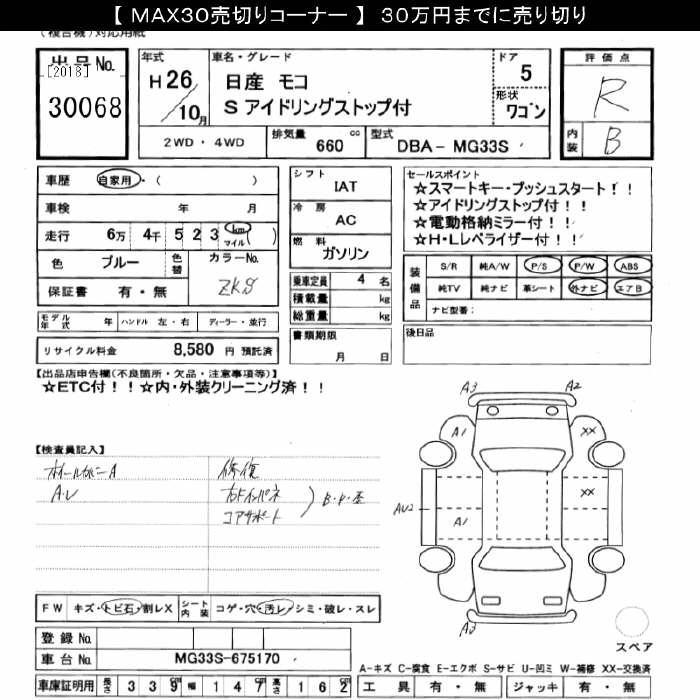 【 MAX30売切りコーナー 】 30万円までに売り切り
(複合機)対応用紙
出品No. [2018] 30068
年式 H26/10月
車名・グレード 日産 モコ
S アイドリングストップ付
ドア 5
形状 ワゴン
評価点 R
内装 B
2WD ・ 4WD 排気量 660 cc 型式 DBA- MG33S
車歴 自家用・( )
車検 年 月
走行 6万 4千 5 2 3 km マイル ( )
色 ブルー 色替 カラーNo. ZKS
保証書 有 ・ 無
モデル年式 年 ハンドル 左・右 ディーラー・並行
リサイクル料金 8,580 円 預託済
シフト IAT
冷房 AC
燃料 ガソリン
乗車定員 4 名
積載量 kg
総重量 kg
書類期限 月 日
セールスポイント
☆スマートキー・プッシュスタート！！
☆アイドリングストップ付！！
☆電動格納ミラー付！！
☆H・Lレベライザー付！！
装備品 S/R 純A/W P/S P/W ABS
純TV 純ナビ 革シート 外ナビ エアB
ナビ型番:
後日品
【出品店申告欄(不良箇所・欠品・注意事項等)】
☆ETC付！！☆内・外装クリーニング済！！
【検査員記入】
ホイールカバーA
A.U
修復
右ドインパネ
コアサポート
B・P・歪
A3 A2
A1 XX
XX
AU2 A1
A3
スペア
FW キズ・トビ石・割レX シート内装 コゲ・穴・汚レ・シミ・破レ・スレ
登録No.
車台No. MG33S-675170
車庫証明用 長さ 3 3 9 cm 幅 1 4 7 cm 高さ 1 6 2 cm
A-キズ C-腐食 E-エクボ S-サビ U-凹ミ W-補修 XX-交換済
工具 有 ・ 無 ジャッキ 有 ・ 無